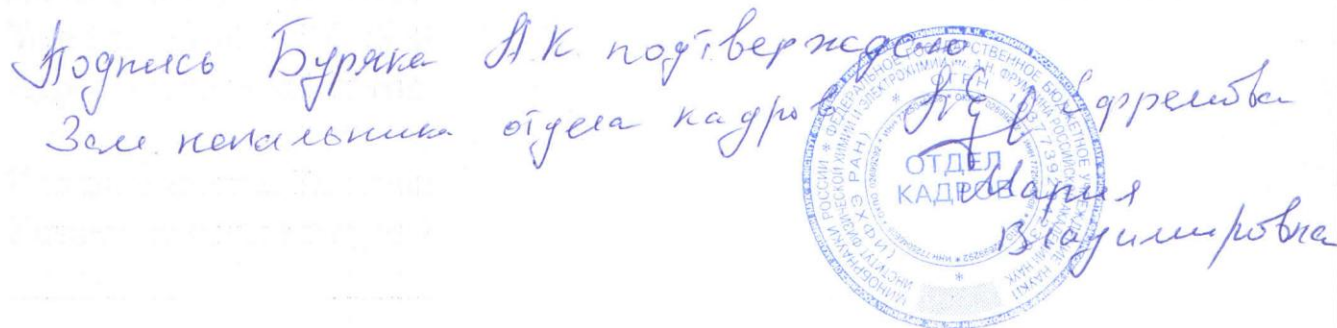 Подпись Буряка А К подтверждаю
Зам. начальника отдела кадров Ефремова
Мария
Владимировна
МИНОБРНАУКИ РОССИИ * ФЕДЕРАЛЬНОЕ ГОСУДАРСТВЕННОЕ БЮДЖЕТНОЕ УЧРЕЖДЕНИЕ НАУКИ
ИНСТИТУТ ФИЗИЧЕСКОЙ ХИМИИ И ЭЛЕКТРОХИМИИ им. А.Н. ФРУМКИНА РОССИЙСКОЙ АКАДЕМИИ НАУК
(ИФХЭ РАН)
ОГРН
ОТДЕЛ
КАДРОВ